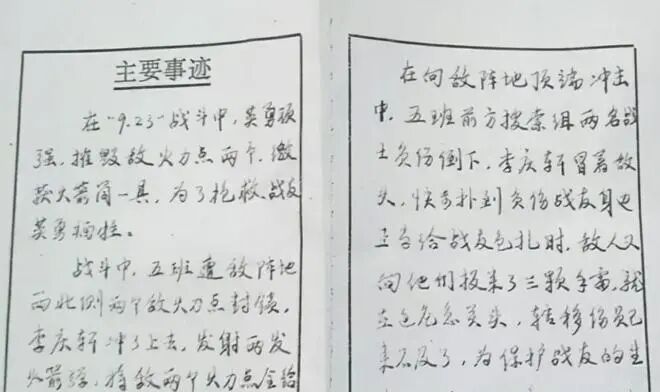 主要事迹
在“9.23”战斗中,英勇顽
强,摧毁敌火力点两个,缴
获火箭筒一具,为了抢救战友
英勇牺牲。
战斗中,五班遭敌阵地
西北侧两个敌火力点封锁,
李庆轩冲了上去,发射两发
火箭弹,将敌两个火力点全给
在向敌阵地顶端冲击
中,五班前方搜索组两名战
士负伤倒下,李庆轩冒着敌
火,快步扑到负伤战友身边
正当给战友包扎时,敌人又
向他们投来了三颗手雷,就
在这危急关头,转移伤员已
来不及了,为保护战友的生